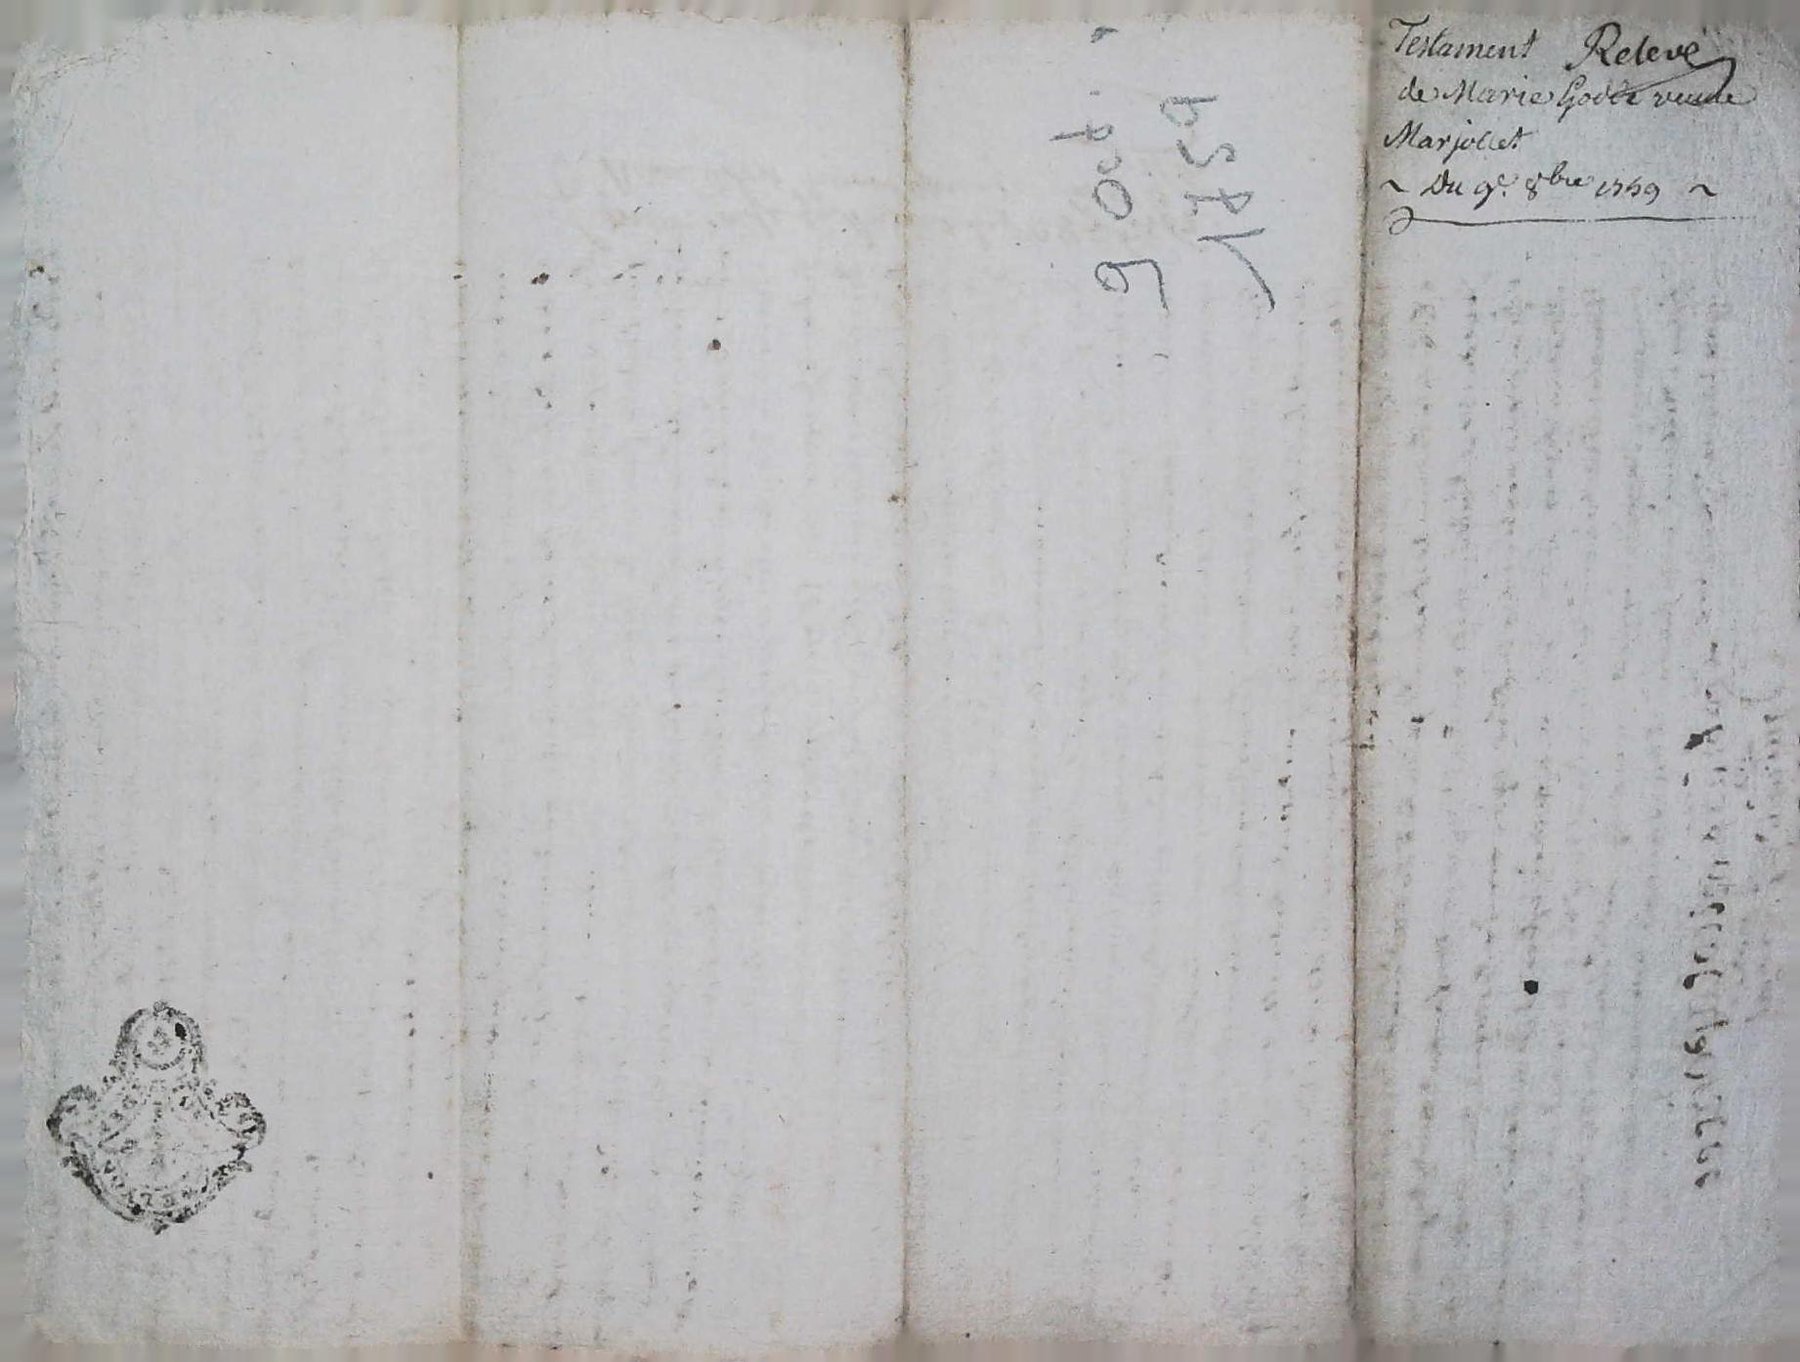 Testament Relevé
de Marie Godet veuve
Marjollet
~ Du 9e. 8bre 1759 ~
9 Oct.
1759